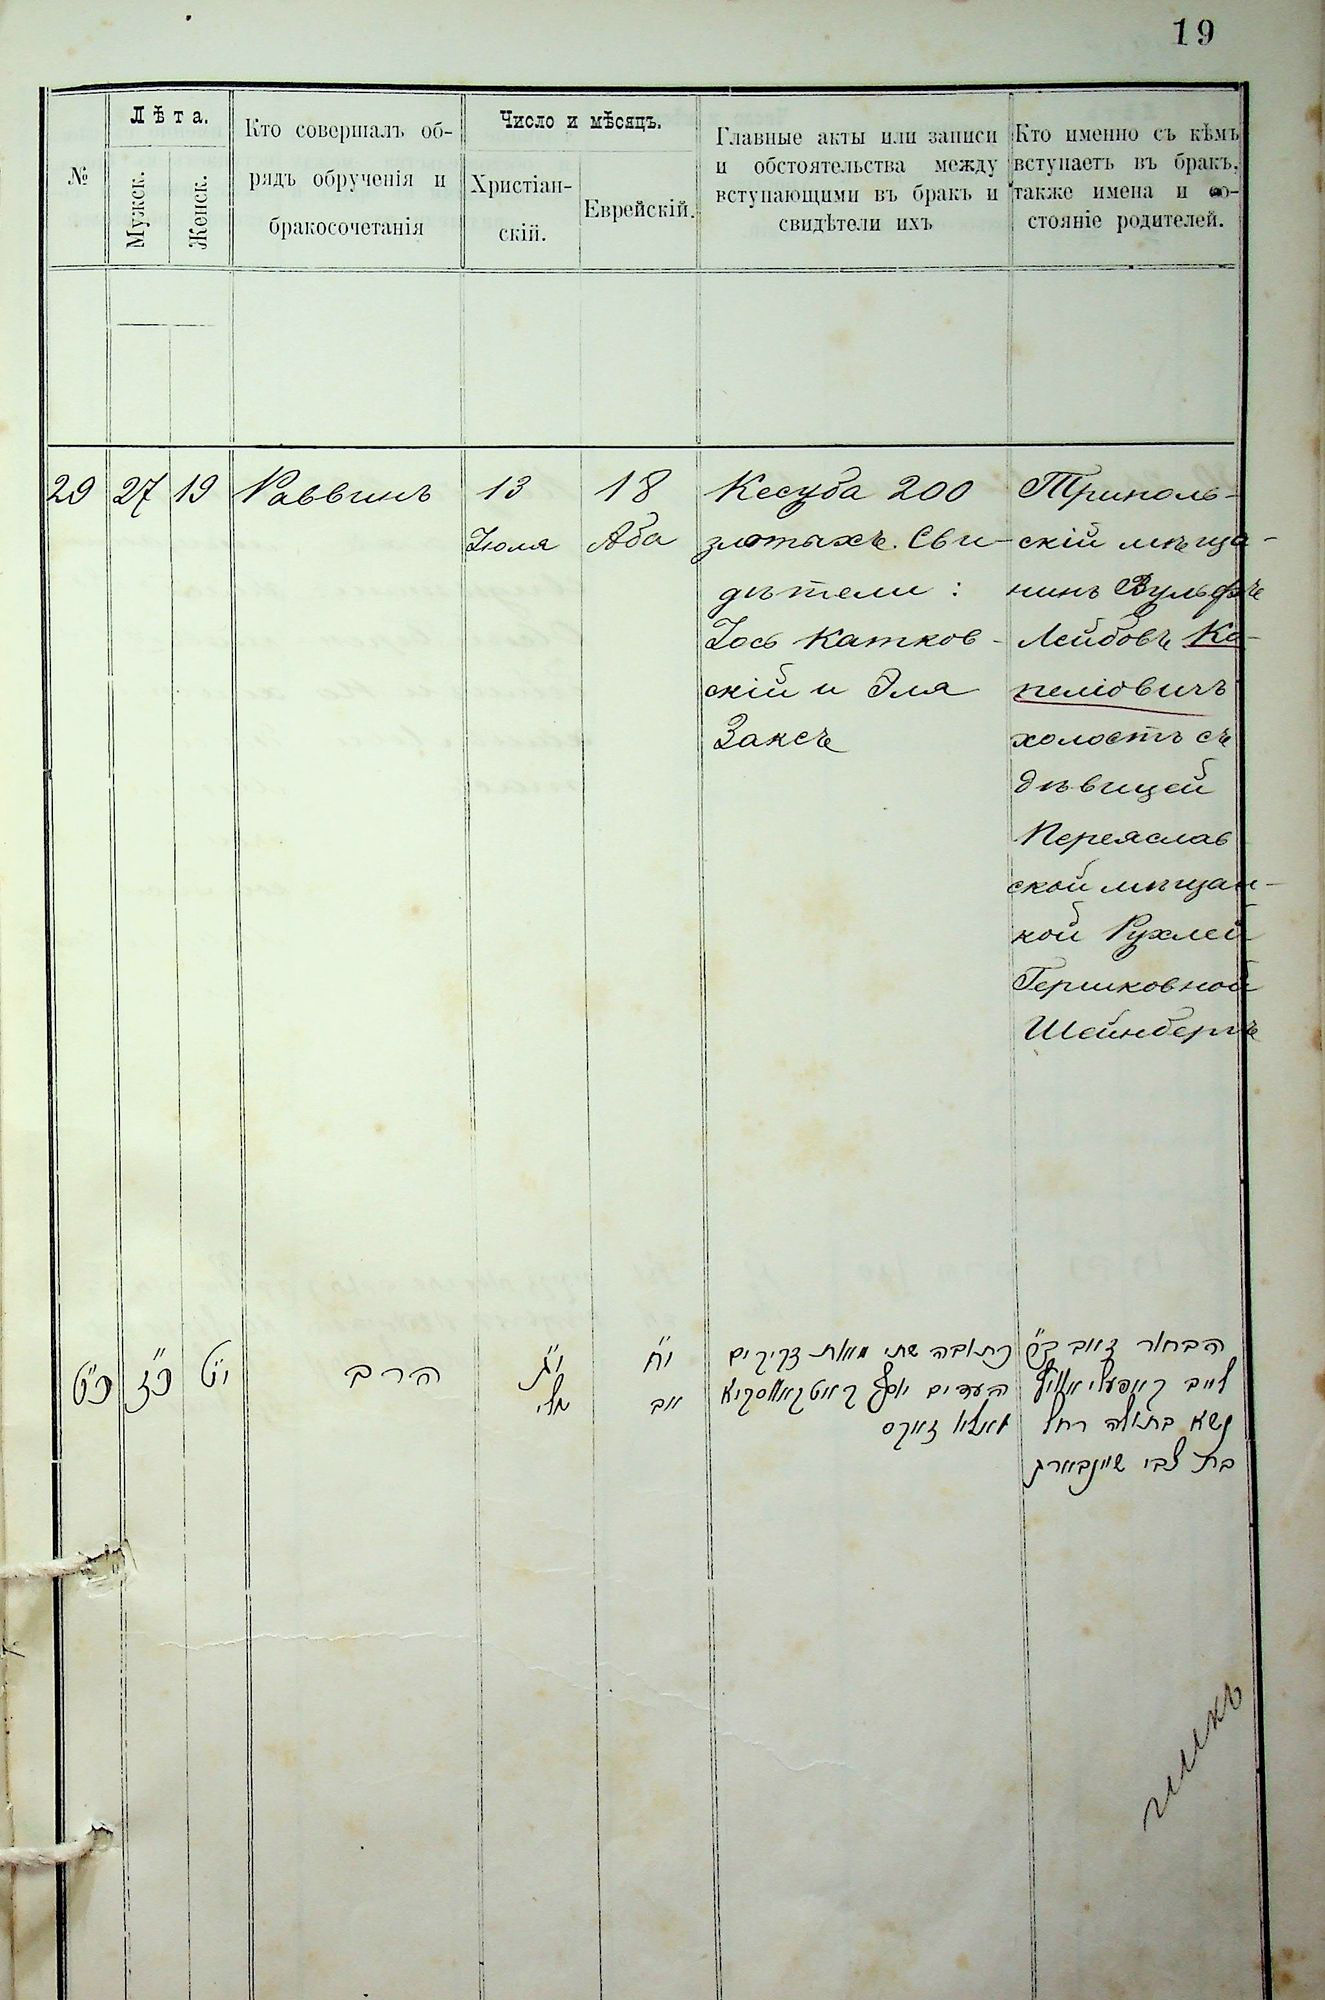 19
№
Лѣта.
Мужск.
Женск.
Кто совершалъ об-
рядъ обрученія и
бракосочетанія
Число и мѣсяцъ.
Христіан-
скій.
Еврейскій.
Главные акты или записи
и обстоятельства между
вступающими въ бракъ и
свидѣтели ихъ
Кто именно съ кѣмъ
вступаетъ въ бракъ,
также имена и со-
стояніе родителей.
29
27
19
Раввинъ
13
Іюля
18
Аба
Кесуба 200
злотыхъ. Сви-
дѣтели :
Іось Катков-
скій и Эля
Заксъ
Триполь-
скій мѣща-
нинъ Вульфъ
Лейбовъ Ка-
пеліовичъ
холостъ съ
дѣвицей
Переяслав
ской мѣщан-
кой Рухлей
Гершковной
Шейнбергъ
כ"ט
כ"ז
י"ט
הרב
י"ג
יולי
י"ח
אב
כתובה שתי מאות צקיקים
העדים יוסף קאטקאווסקיא
ואליא זאקס
הבחור זאב ב"ר
לייב קאפעליאוויץ
נשא בתולה רחל
בת צבי שיינבערג